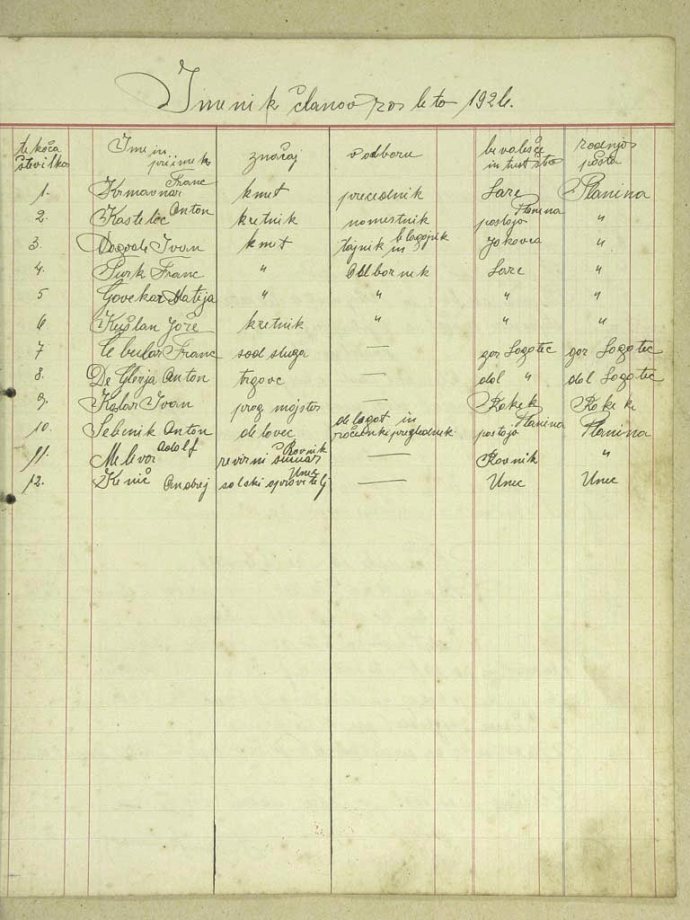 Imenik članov za leto 1926.
tekoča številka Ime in priimek značaj v odboru bivališče zadnja pošta
1. Franc kmet precednik Laze Planina
2. Kastelec Anton kretnik nomestnik postaja Planina "
3. Ivan kmet tajnik in blagajnik Jakovca "
4. Turk Franc " Odbornik Laze "
5 Govekar Matija " " " "
6 Kušlan Jože kretnik " " "
7 Franc sod sluga — gor Logatec gor Logatec
8. De Gleria Anton trgovc — dol " dol Logatec
9. Ivan prog mojster — Rakek Rakek
10. Sebenik Anton delovec delagat in računski preglednik postaja Planina Planina
11. Adolf revirni Ravnik — Ravnik "
12. Andrej šolski upravitelj Unec — Unec Unec